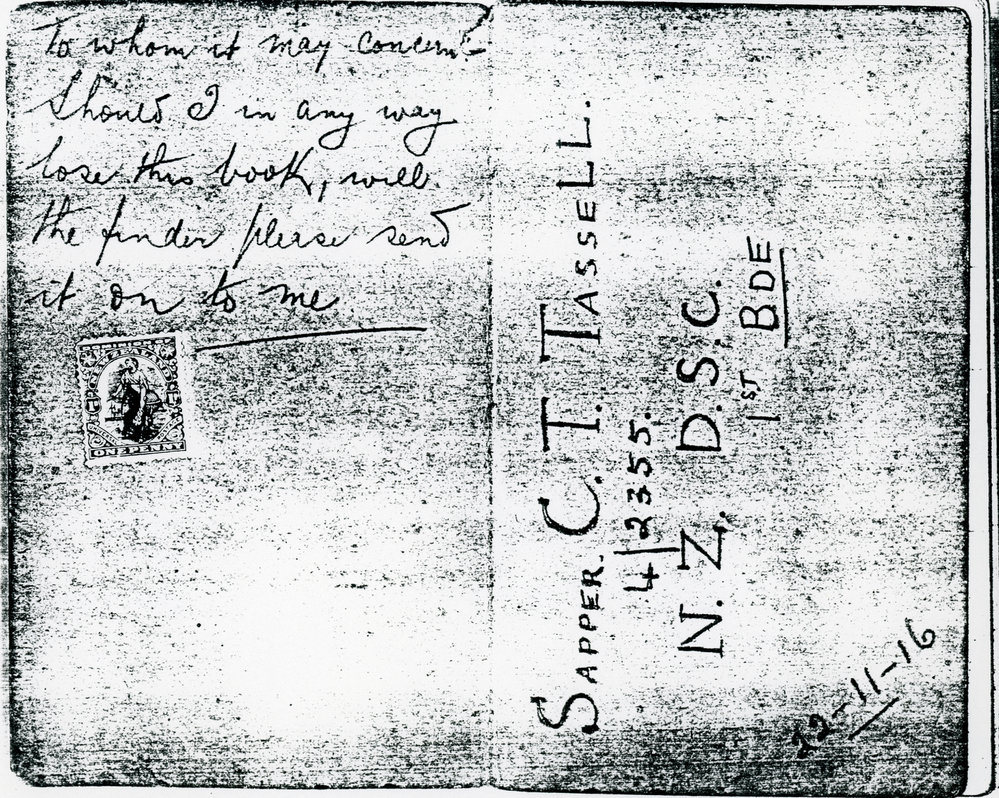 To whom it may concern –
Should I in any way
lose this book, will
the finder please send
it on to me
ONE PENNY
SAPPER. C. T. TASSELL.
4/2355.
N. Z. D.S.C.
1ST BDE
22-11-16